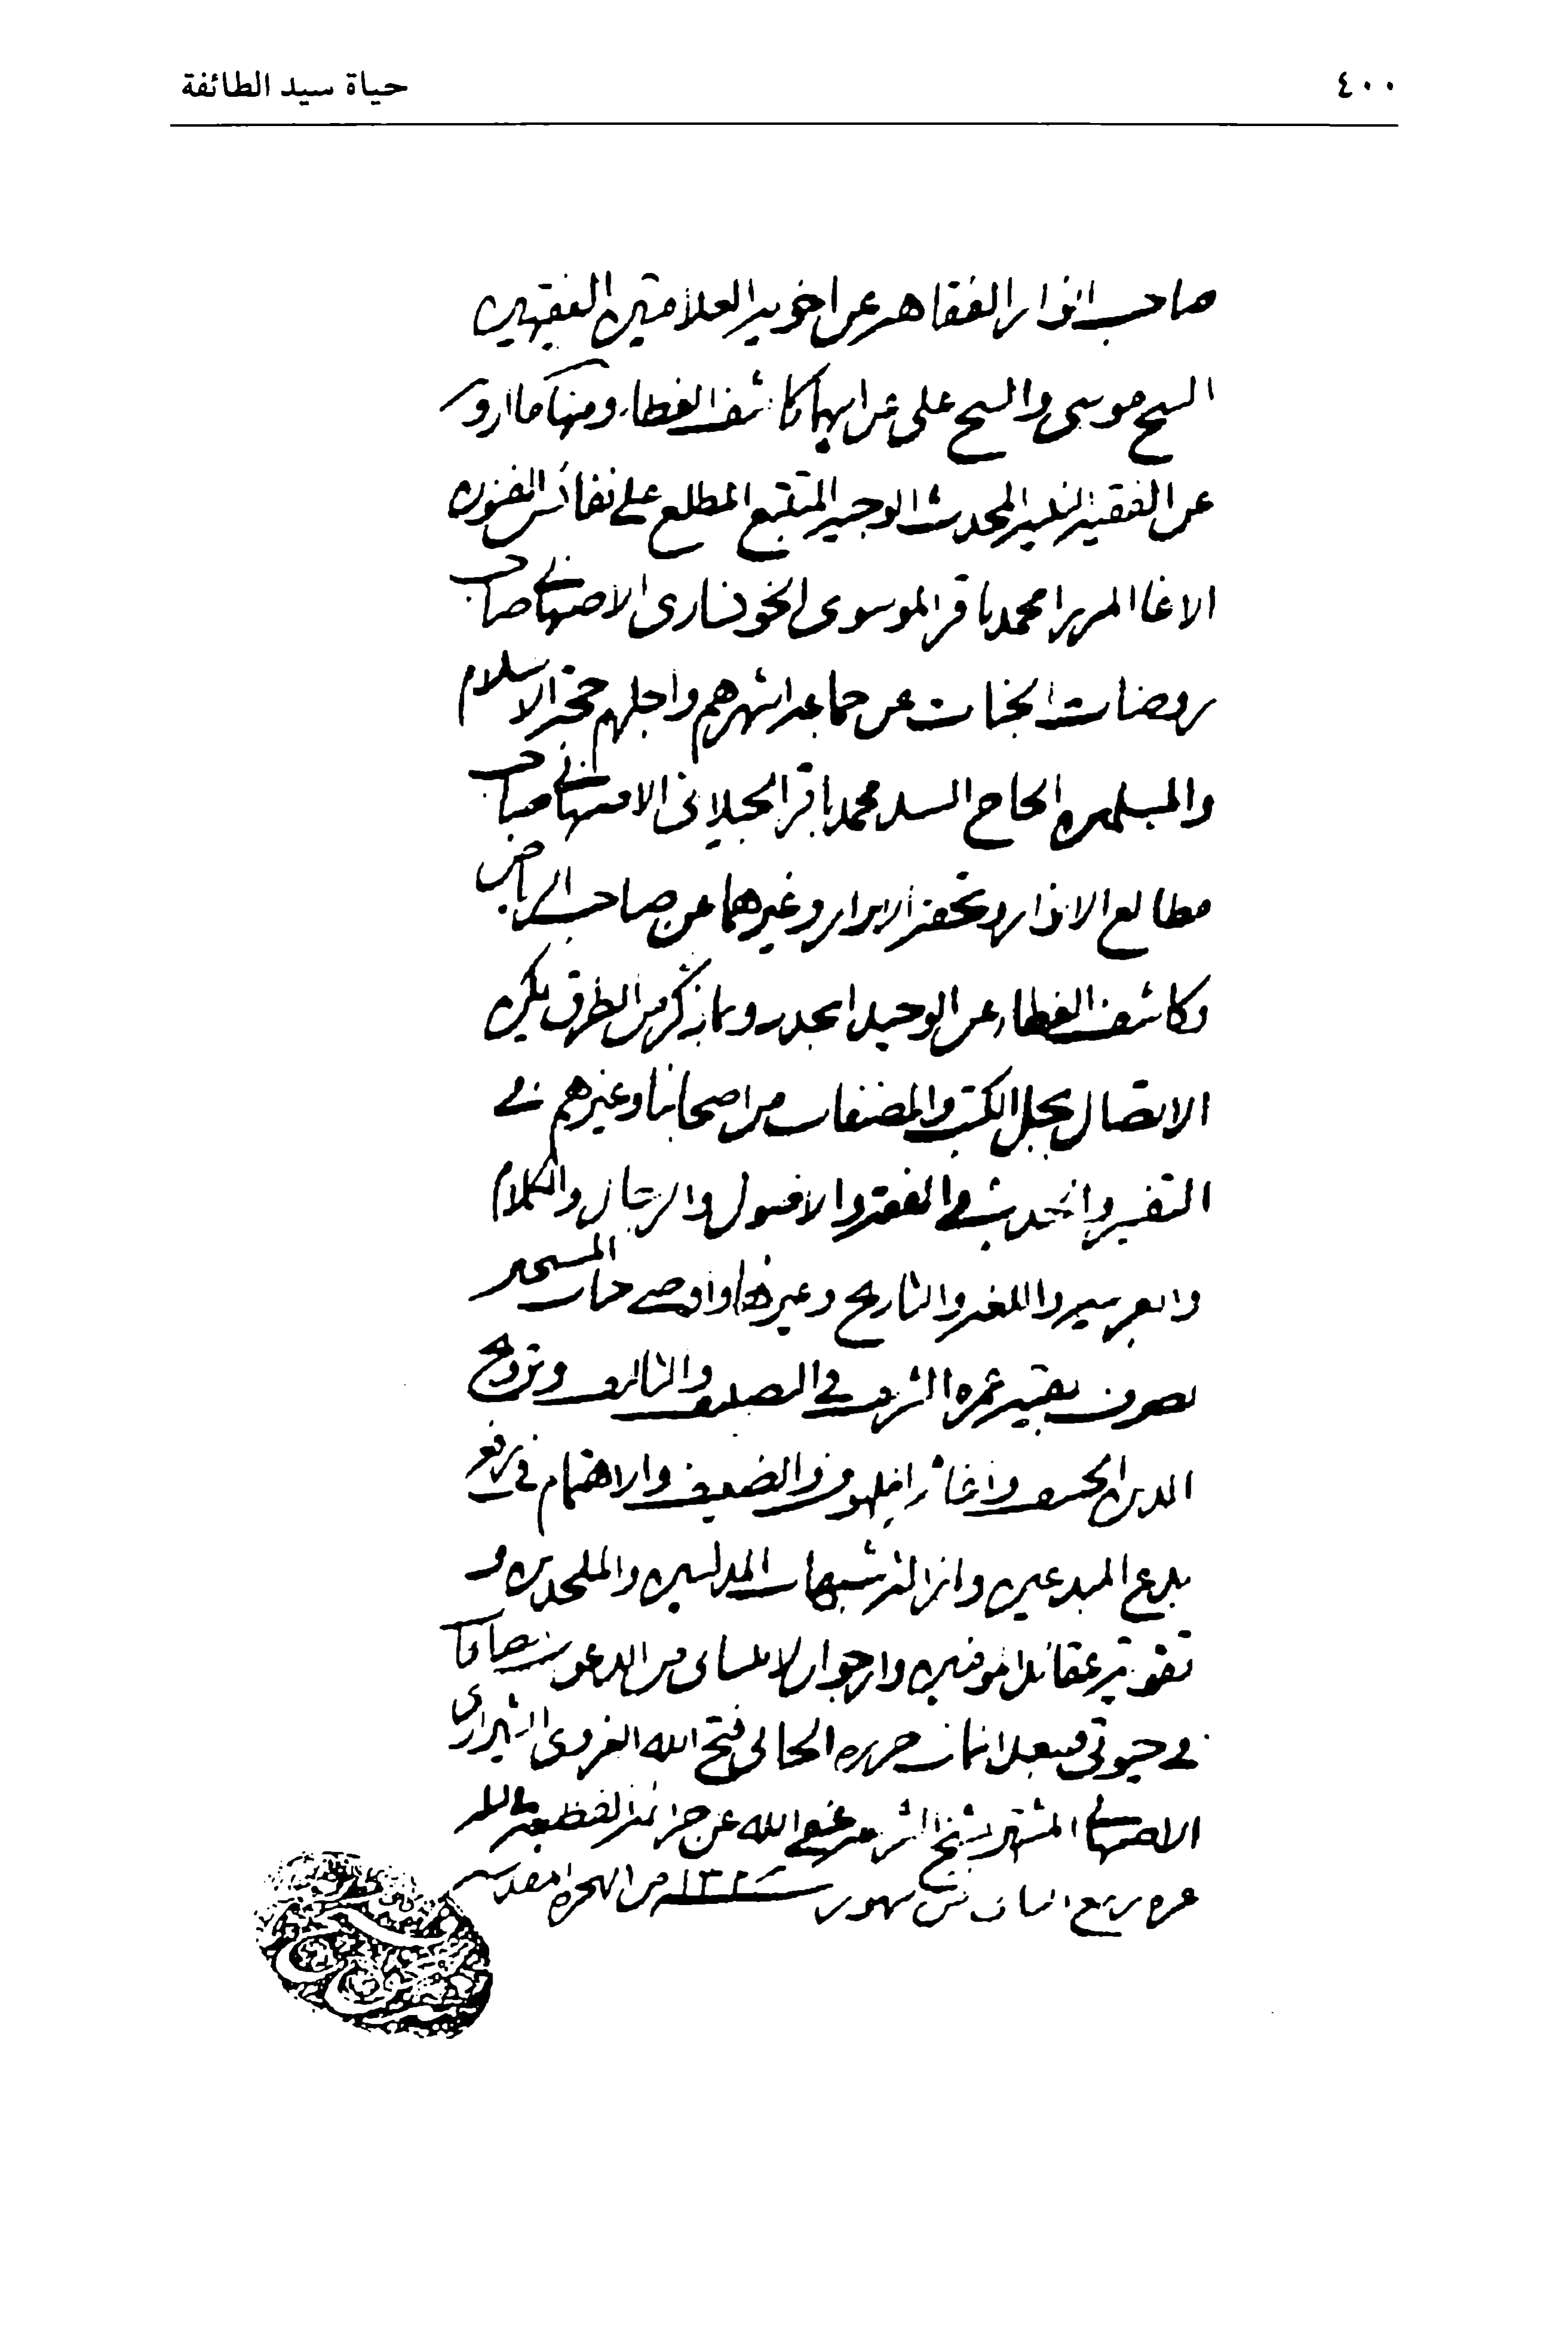 ٤٠٠
حياة سيد الطائفة
صاحب انوار الفقاهه عن اخويه العلامتين الفقيهين
الشيخ موسى والشيخ على عن ابيهما كاشف الغطاء ومنها ما اروى
عن الفقيه النبيه المحدث الوجيه المتتبع المطلع على نفائس الفنون
الاغا الميرزا محمد باقر الموسوى الخونسارى الاصبهانى صاحب
روضات الجنات عن جماعه اشهرهم واجلهم حجة الاسلام
والمسلمين الحاج السيد محمد باقر الجيلانى الاصبهانى صاحب
مطالع الانوار وتحفة الابرار وغيرهما عن صاحب الرياض
وكاشف الغطاء عن الوحيد المجدد وبما ذكر من الطرق يمكن
الاتصال بجل الكتب والمصنفات من اصحابنا وغيرهم فى
التفسير والحديث والفقه والاصول والرجال والكلام
والعربيه واللغه والتاريخ وغيرها واوصى جناب المستجيز
بصرف بقية عمره الشريف فى التصنيف والتاليف وترويج
الدين الحنيف واغاثة الملهوف والضعيف والاهتمام فى رفع
بدع المبدعين وازالة شبهات المدلسين والملحدين و
تقوية عقائد المؤمنين وارجو ان لا ينسانى من الدعوات
فى حيوتى وبعد الممات حرره الجانى فتح الله الغروى الشيرازى
الاصبهانى المشتهر بشيخ الشريعه عفى الله عن جرائمه الفظيعه
غره ربيع الثانى من شهور من الهجره المقدسه